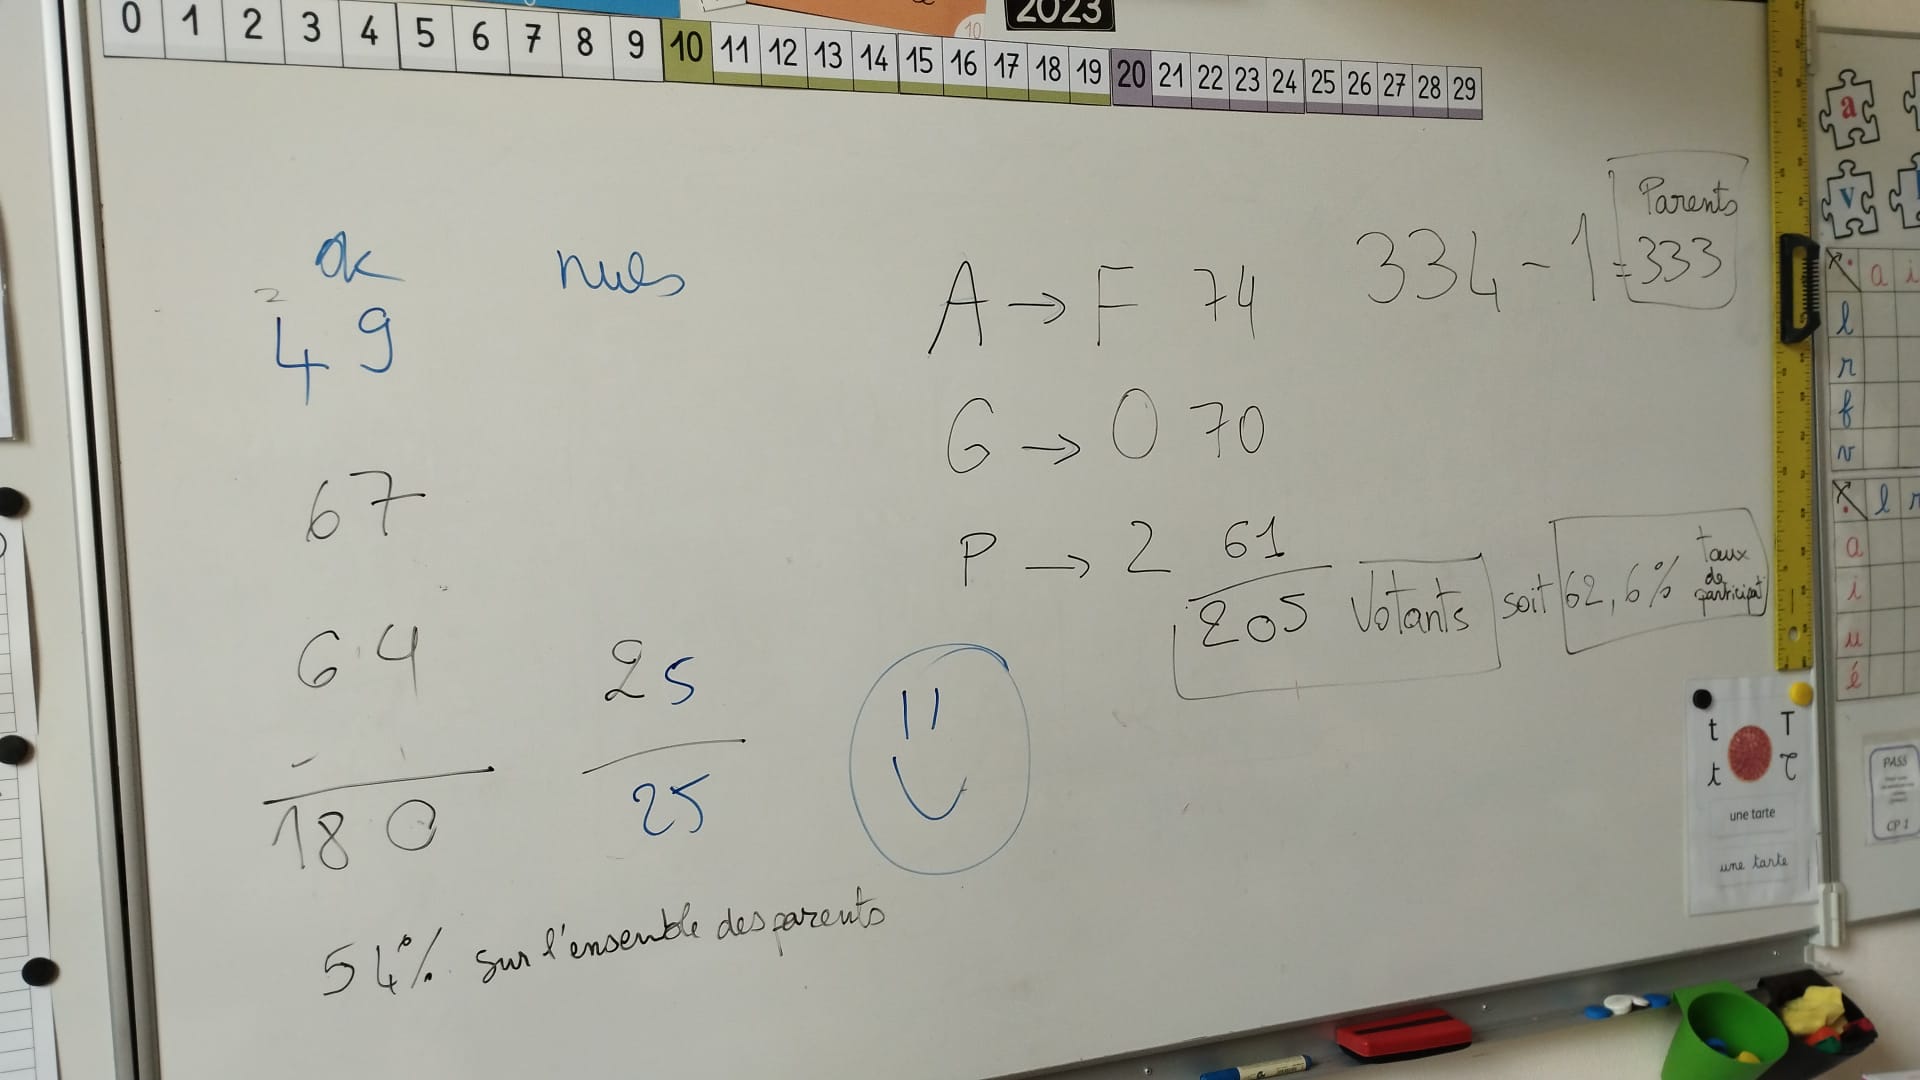 2023
10
0 1 2 3 4 5 6 7 8 9 10 11 12 13 14 15 16 17 18 19 20 21 22 23 24 25 26 27 28 29
ok nuls
2
49
67
64 25
180 25
54% sur l'ensemble des parents
A → F 74
G → O 70
P → Z 61
205 Votants soit 62,6% taux de participat
334 - 1 = 333
Parents
a
v
a i
l
r
f
v
l r
a
i
u
é
t T
t
une tarte
une tarte
PASS
CP 1